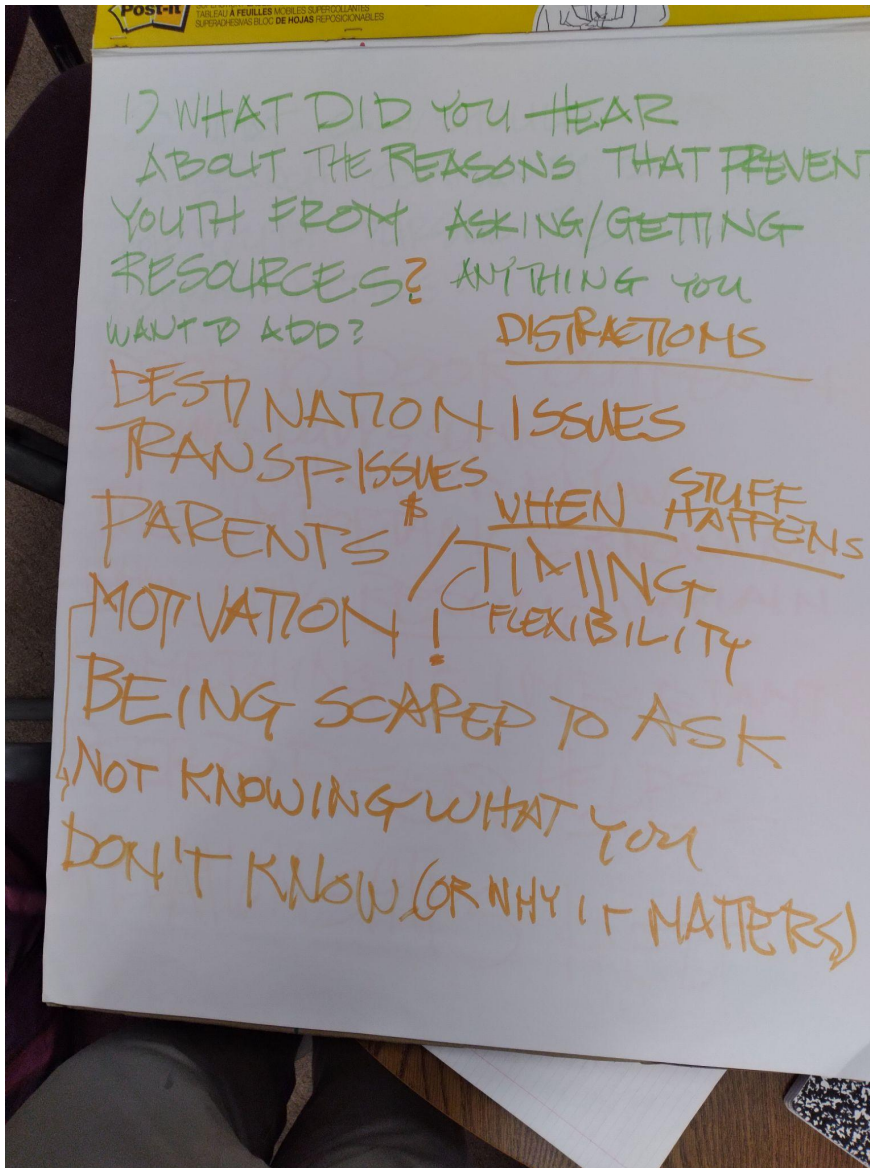 Post-it
TABLEAU À FEUILLES MOBILES SUPERCOLLANTES
SUPERADHESIVAS BLOC DE HOJAS REPOSICIONABLES
1) WHAT DID YOU HEAR
ABOUT THE REASONS THAT PREVENT
YOUTH FROM ASKING/GETTING
RESOURCES? ANYTHING YOU
WANT TO ADD?
DISTRACTIONS
DESTINATION ISSUES
TRANSP. ISSUES
PARENTS $
WHEN STUFF
HAPPENS
MOTIVATION! / TIMING
FLEXIBILITY
BEING SCARED TO ASK
NOT KNOWING WHAT YOU
DON'T KNOW (OR WHY IT MATTERS)